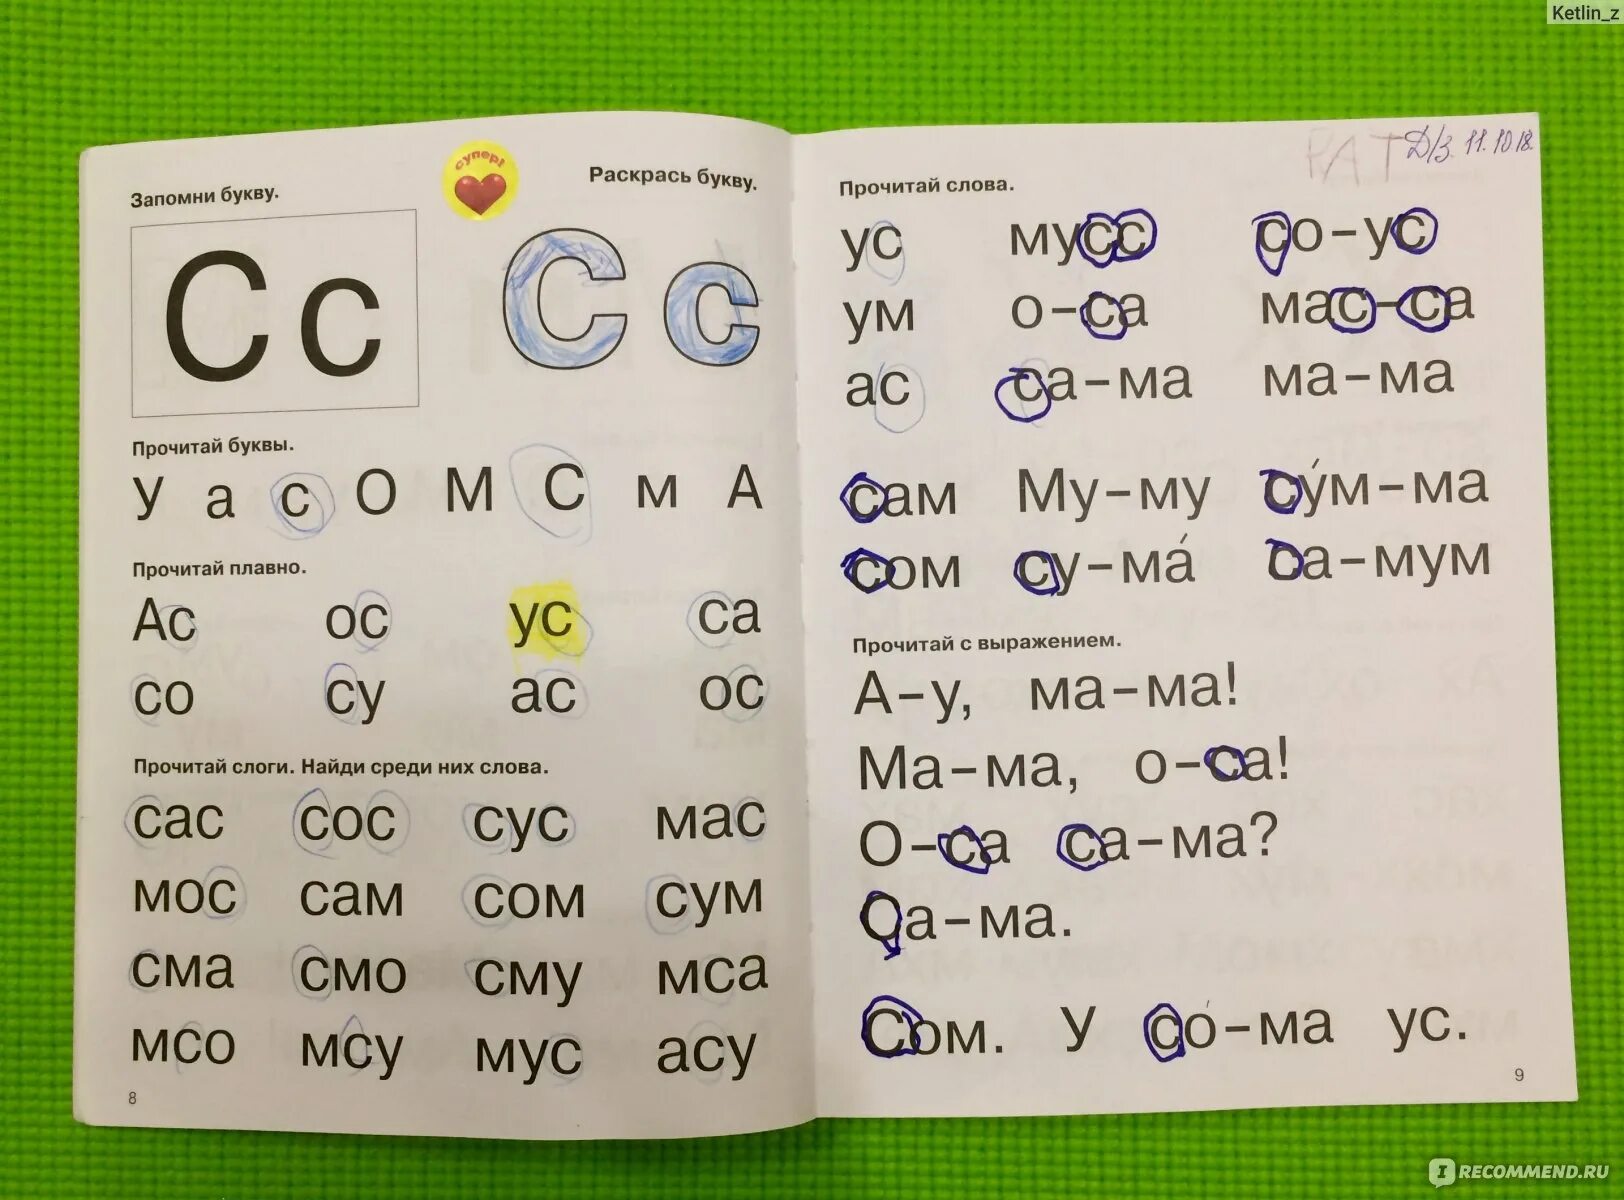 Ketlin_z
Запомни букву.
супер!
Раскрась букву.
С с
С с
Прочитай буквы.
У а с О М С м А
Прочитай плавно.
Ас ос ус са
со су ас ос
Прочитай слоги. Найди среди них слова.
сас сос сус мас
мос сам сом сум
сма смо сму мса
мсо мсу мус асу
8
РАТ Д/З. 11.10 18.
Прочитай слова.
ус мусс со-ус
ум о-са мас-са
ас са-ма ма-ма
сам Му-му су́м-ма
сом су-ма́ са-мум
Прочитай с выражением.
А-у, ма-ма!
Ма-ма, о-са!
О-са са-ма?
Са-ма.
Сом. У со́-ма ус.
9
IRECOMMEND.RU